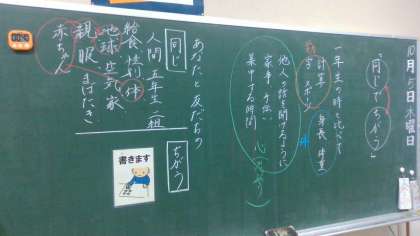 「同じでちがう」
一年生の時と比べて
計算 身長 体重
字 スポーツ
体
他人の話を聞けるように
家事 手伝い
集中する時間
心
あなたと友だちの
同じ
人間 五年生 一組
給食 性別 体
地球 空気 家
親 眼 まばたき
赤ちゃん
ちがう
書きます